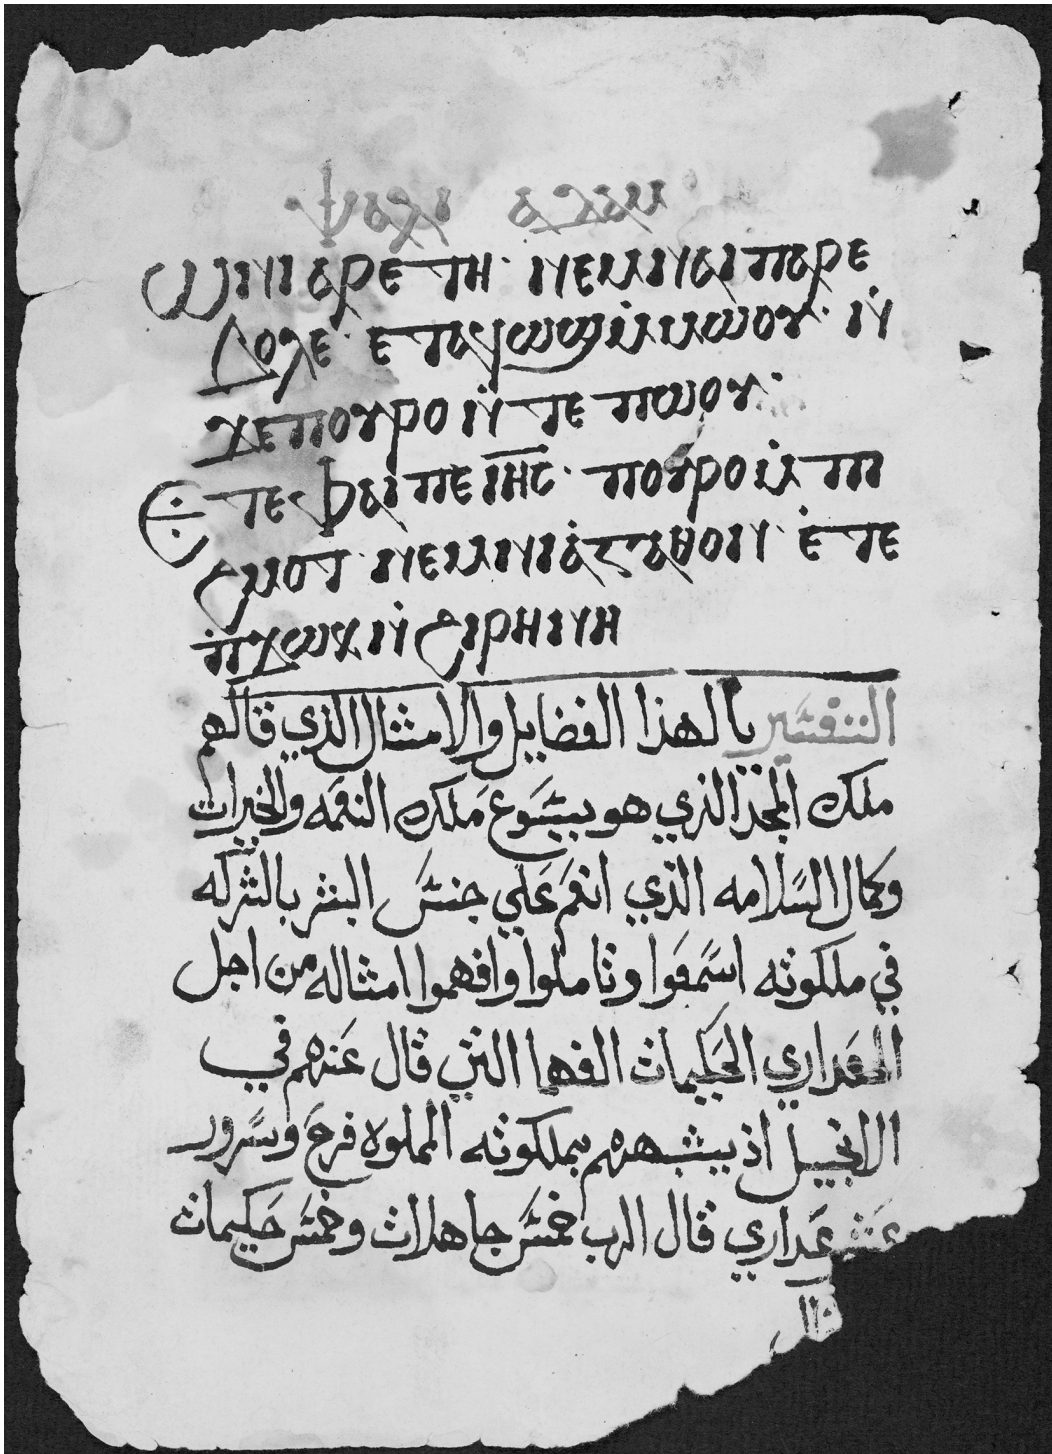 ⲯⲁⲗⲓ ⲁⲇⲁⲙ
ⲱⲛⲓⲁⲣⲉⲧⲏ· ⲛⲉⲙⲛⲁⲓⲡⲁⲣⲉ
ⲃⲟⲗⲉ· ⲉⲧⲁϥⲱϣⲙ̇ⲙⲱⲟⲩ· ⲛ̇
ϫⲉⲡⲟⲩⲣⲟ ⲛ̇ⲧⲉⲡⲱⲟⲩ:
ⲉⲧⲉⲫⲁⲓⲡⲉⲓⲏ̅ⲥ̅· ⲡⲟⲩⲣⲟⲙ̇ⲡⲓ
ϩⲙⲟⲧ· ⲛⲉⲙⲛⲓⲁ̇ⲅⲁⲑⲟⲛ· ⲉ̇ⲧⲉ
ⲡ̇ϫⲱⲕⲛ̇ϩⲓⲣⲏⲛⲏ
التفسير يا لهذا الفضايل والامثال الذي قالهم
ملك المجد الذي هو يسوع ملك النعمه والخيرات
وكمال السلامه الذي انعم علي جنس البشر بالشركه
في ملكوته اسمعوا وتاملوا وافهموا امثاله من اجل
العداري الحكيمات الفهما التي قال عنهم في
الانجيل اذ يشبههم بملكوته المملوه فرح وسرور
عشر عداري قال الرب خمس جاهلات وخمس حكيمات